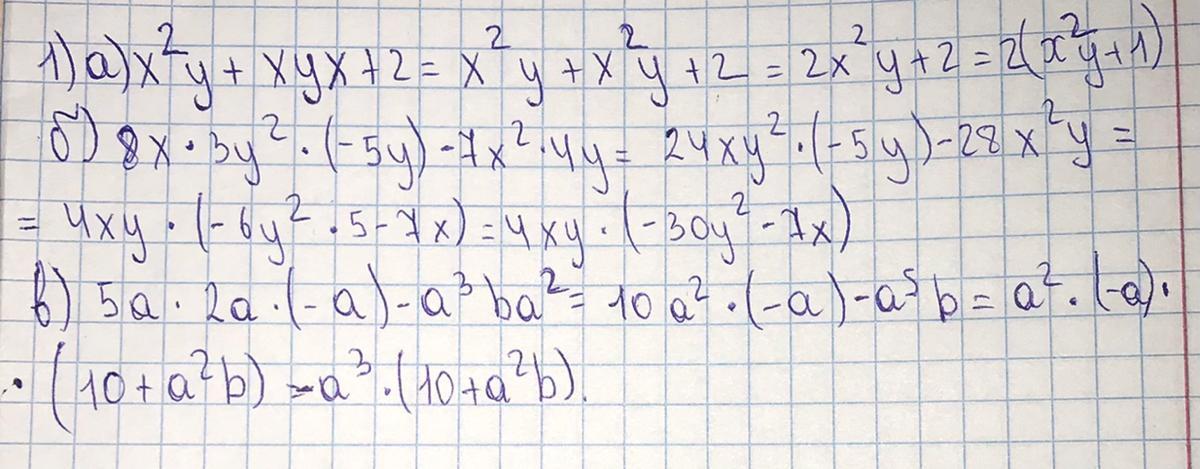 1) а) x²y + xyx + 2 = x²y + x²y + 2 = 2x²y + 2 = 2(x²y + 1)
б) 8x · 3y² · (-5y) - 7x² · 4y = 24xy² · (-5y) - 28x²y =
= 4xy · (-6y² · 5 - 7x) = 4xy · (-30y² - 7x)
в) 5a · 2a · (-a) - a³ba² = 10a² · (-a) - a⁵b = a² · (-a) ·
· (10 + a²b) = -a³ · (10 + a²b).